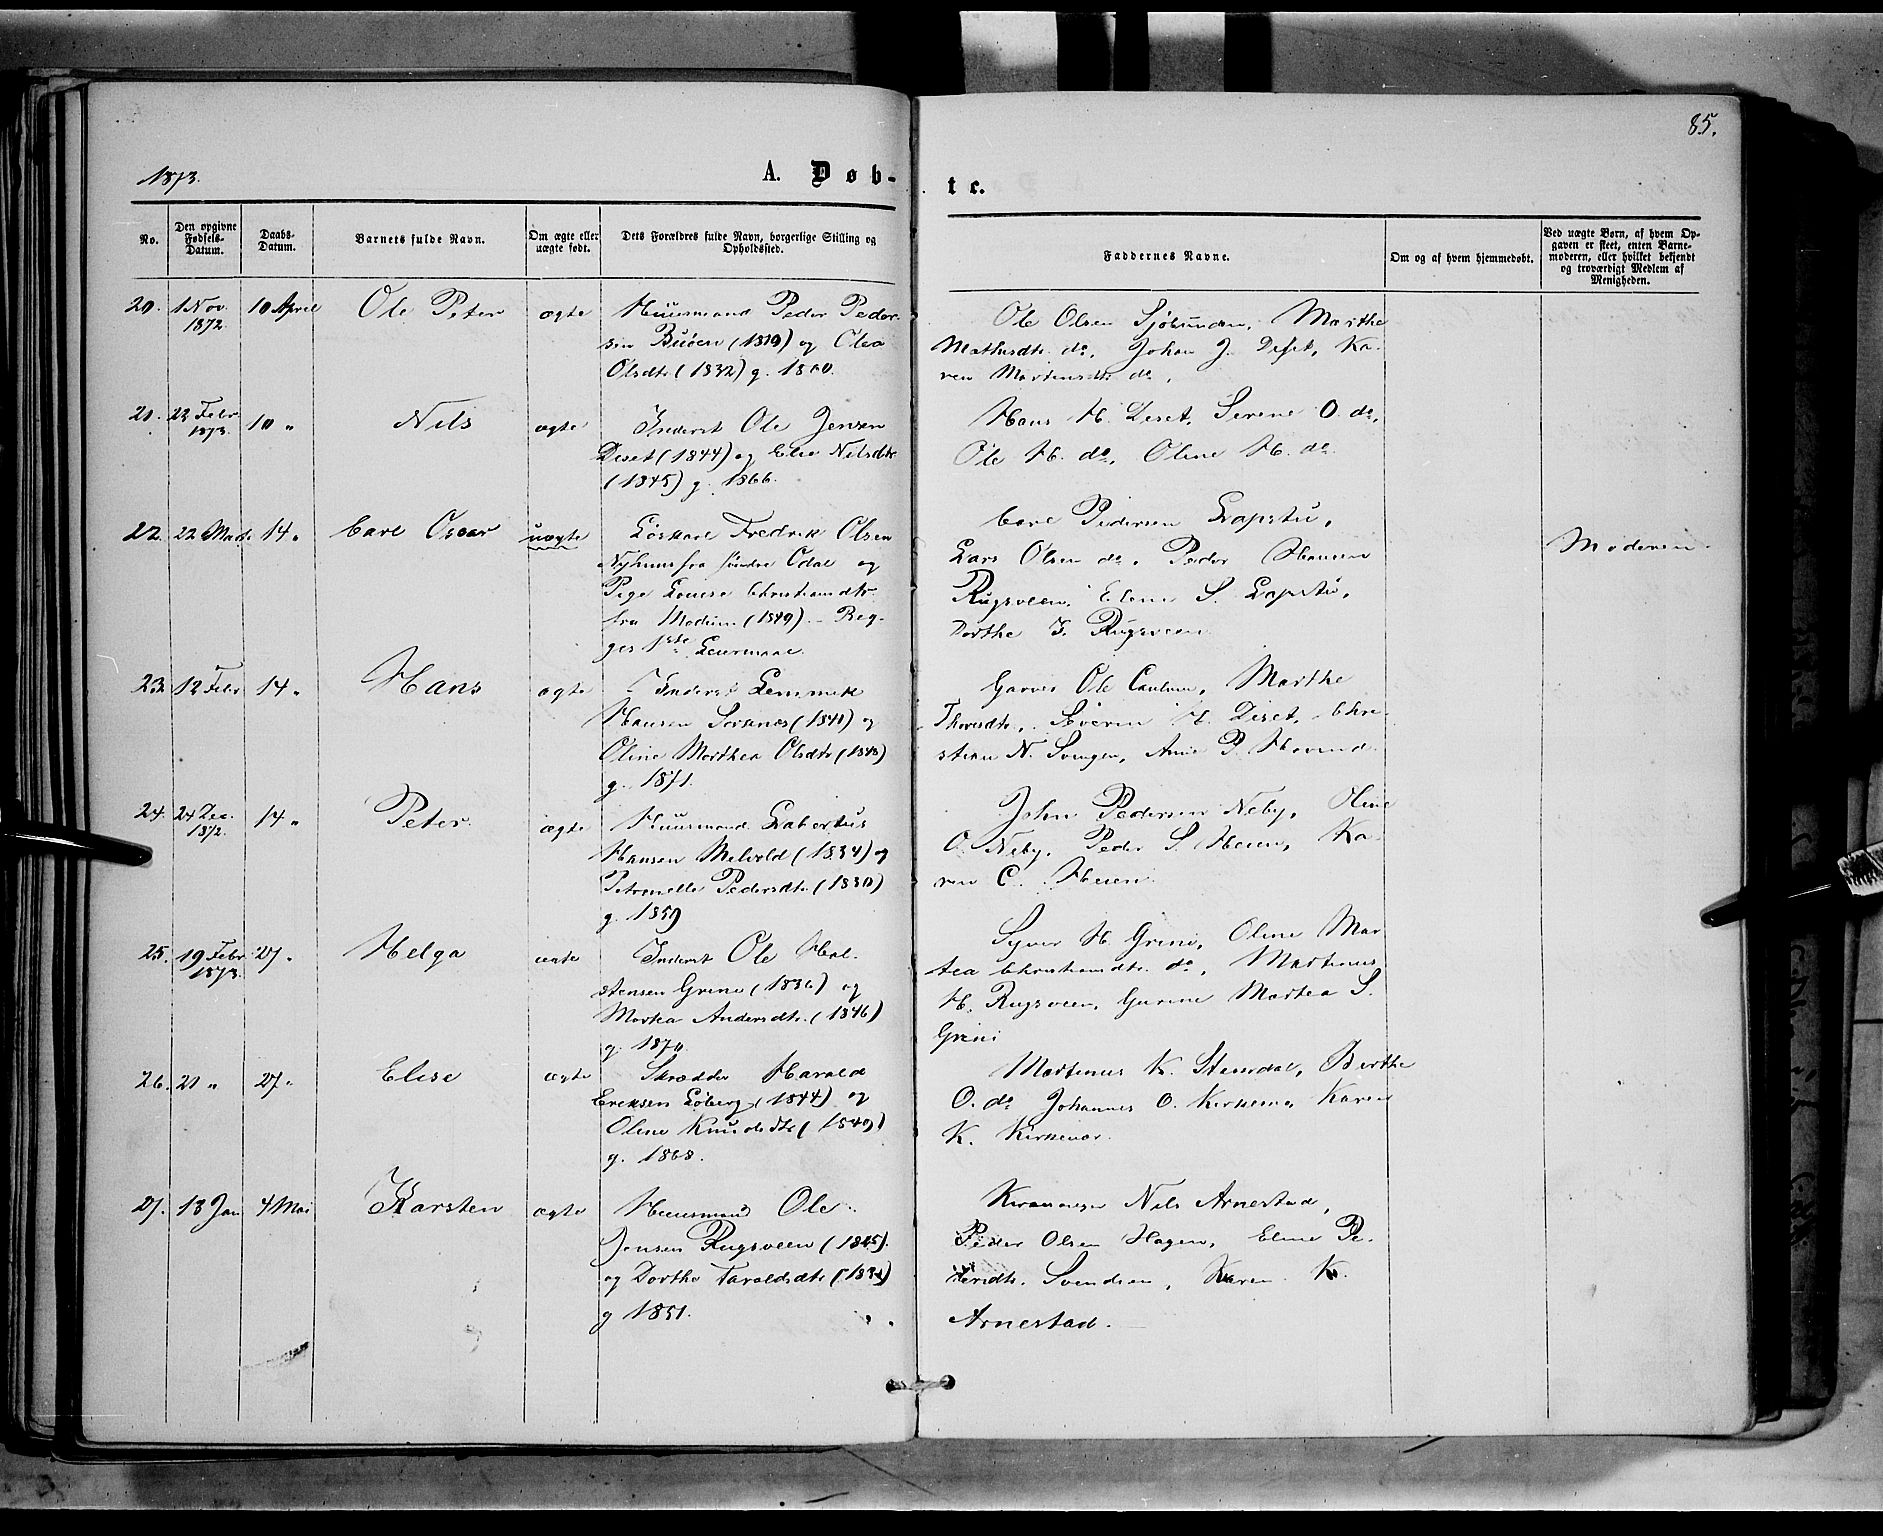 85.
1873.
A. Døb-
te.
No.
Den opgivne Fødsels-Datum.
Daabs-Datum.
Barnets fulde Navn.
Om ægte eller uægte født.
Dets Forældres fulde Navn, borgerlige Stilling og Opholdssted.
Faddernes Navne.
Om og af hvem hjemmedøbt.
Ved uægte Børn, af hvem Op-
gaven er skeet, enten Barne-
moderen, eller hvilket bekjendt
og troværdigt Medlem af
Menigheden.
20. 1 Nov. 1872. 10 April Ole Peter ægte
Huusmand Peder Peder-
sen (1819) og Olea
Olsdtr (1832) g. 1860.
Ole Olsen Marthe
Mathisdtr. do, Johan J. Diset, Ka-
ren Martinsdtr do,
21. 22 Febr. 1873. 10 " Nils ægte
Inderst Ole Jensen
Diset (1844) og Elie Nilsdtr
(1845) g. 1866.
Hans H. Diset, Serine O. do,
Ole H. do, Oline H. do.
22. 22 Marts 14 " Carl Oscar uægte
Løskarl Fredrik Olsen
Nyhuus fra søndre Odal og
Pige Louise Christiansdtr.
fra Modum (1849). - Beg-
ges 1ste Leiermaal.
Carl Pedersen Lapstu,
Lars Olsen do, Peder Hansen
Rugsveen, Eline S. Lapstu,
Dorthe J. Rugsveen.
Moderen.
23. 12 Febr 14 " Hans ægte
Inderst Lemmik
Hansen Sorknæs (1841) og
Oline Marthea Olsdtr (1848)
g. 1871.
Garver Ole Marthe
Thoresdtr, Søveren H. Diset, Chri-
stian N. Svingen, Anne P. Hovind.
24. 24 Dec. 1872. 14 " Peter. ægte
Huusmand Labertus
Hansen Melvold (1834) og
Petronelle Pedersdtr (1830)
g. 1859
John Pedersen Neby, Oline
O. Neby, Peder S. Heien, Ka-
ren C. Heien.
25. 19 Febr 1873. 27 " Helga ægte
Inderst Ole Hal-
stensen Grini (1836) og
Martea Andersdtr. (1846)
g. 1870.
Syver H. Grini, Oline Mar-
tea Christiansdtr. do, Martinus
H. Rugsveen, Gurine Martea S.
Grini
26. 21 " 27 " Elise ægte
Skrædder Harald
Eriksen Løberg (1844) og
Oline Knudsdtr (1849)
g. 1868.
Martinus K. Stemdal, Berthe
O. do Johannes O. Kirkemo, Karen
K. Kirkemo.
27. 13 Jan 4 Mai Karsten ægte
Huusmand Ole
Jensen Rugsveen (1825)
og Dorthe Taraldsdtr (1831)
g 1851.
Nils Arnestad,
Peder Olsen Hagen, Eline Pe-
dersdtr. Svendsen, Karen K.
Arnestad.